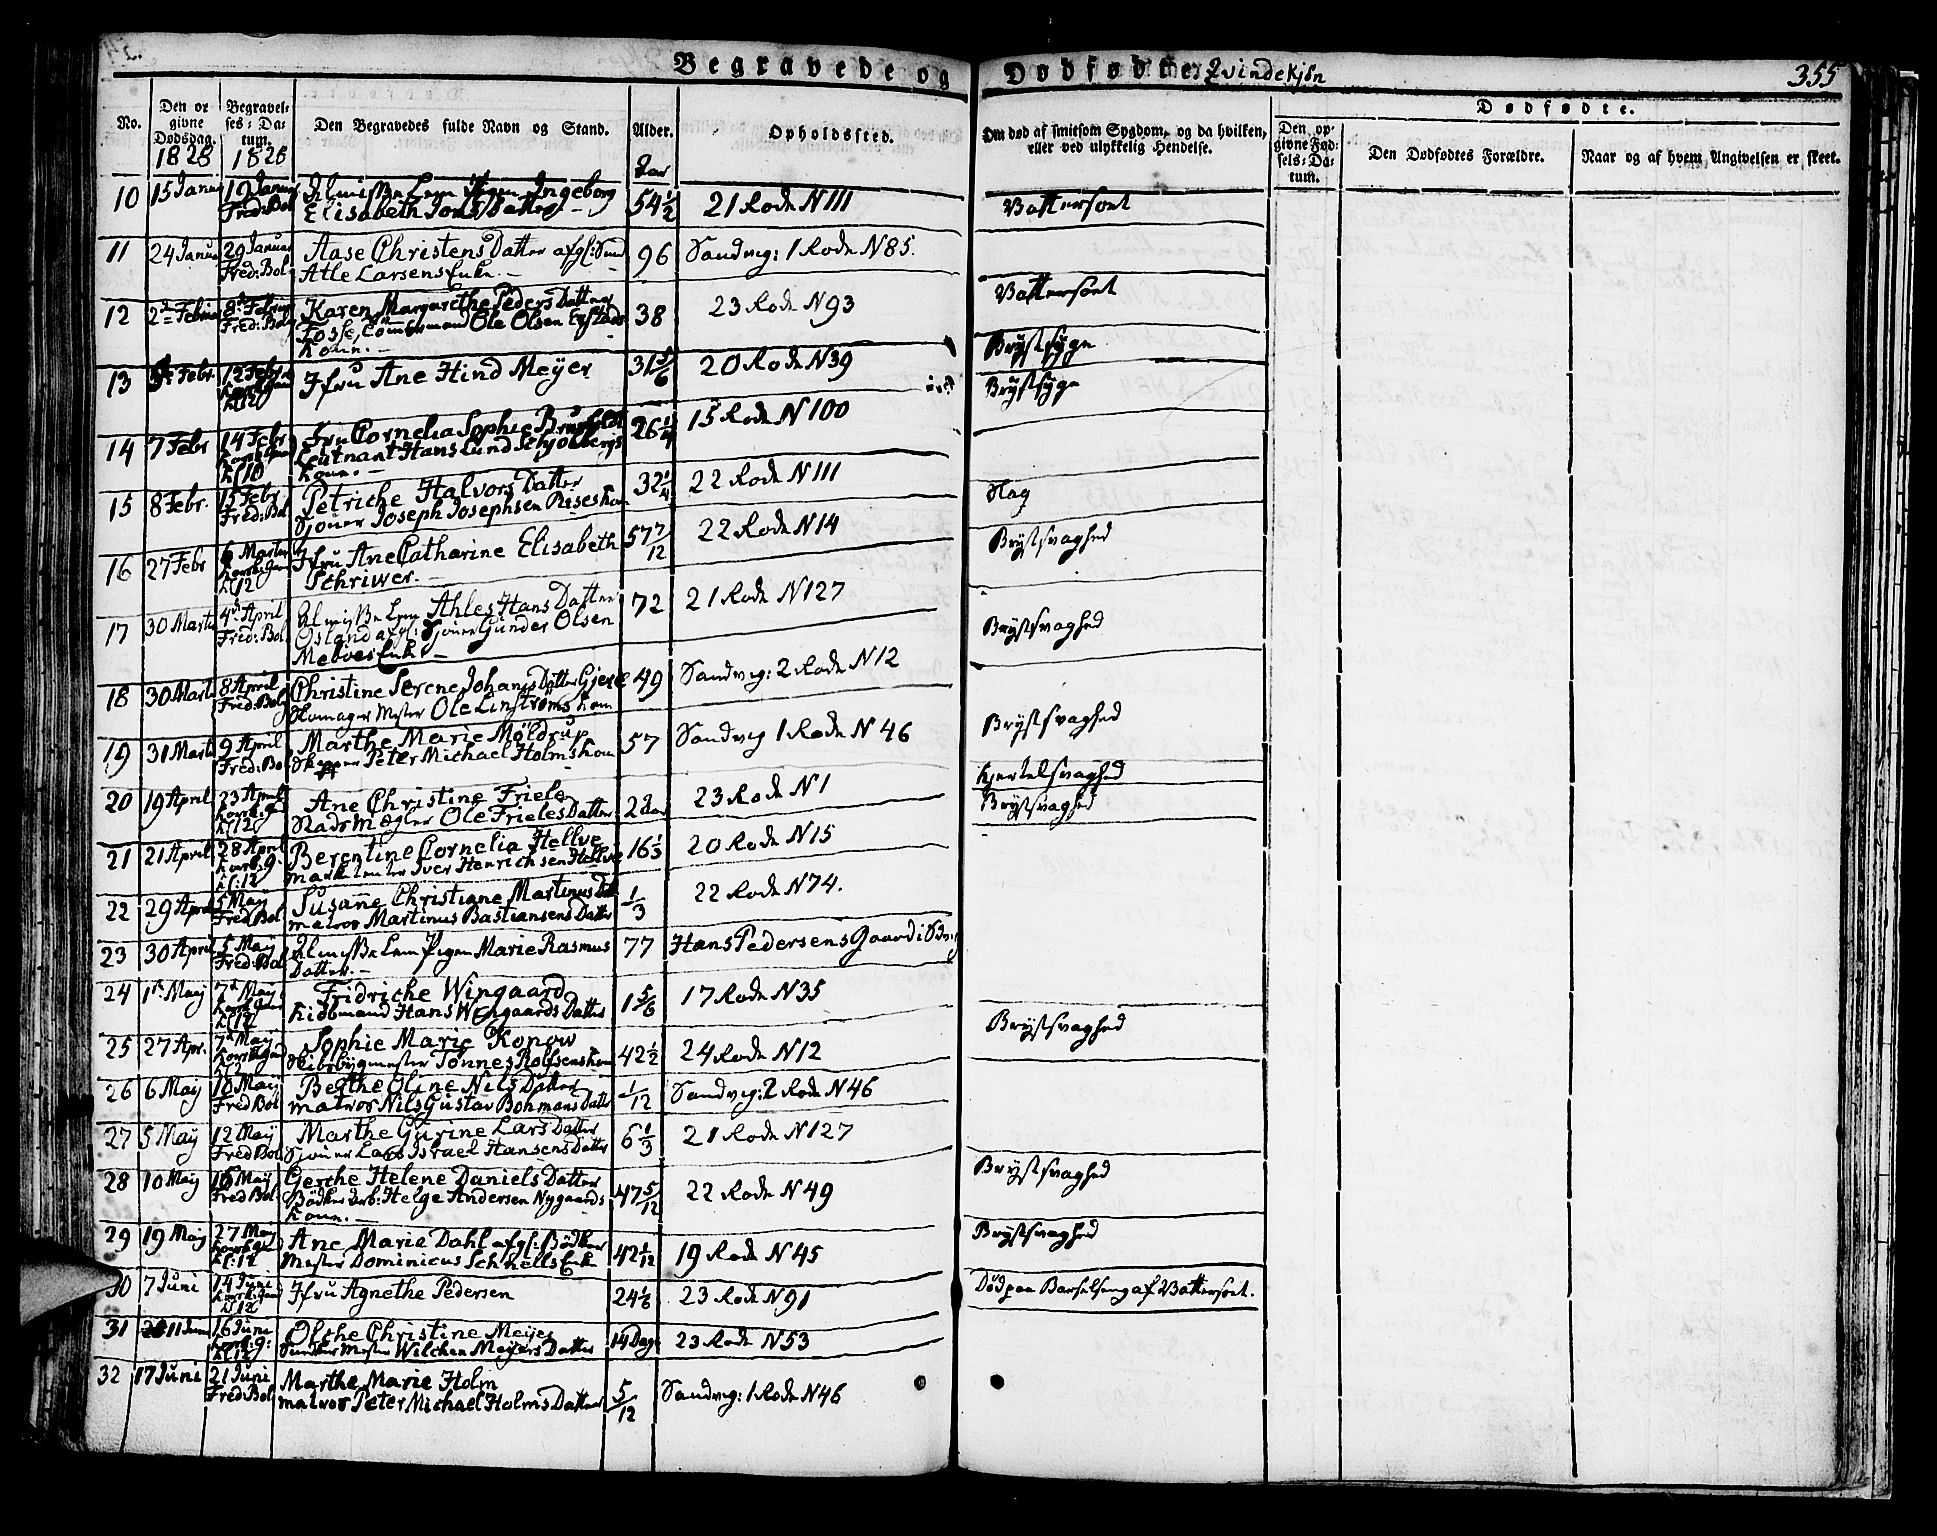 Begravede og Dødfødte Qvindekjøn 355
No. Den opgivne Dødsdag. Begravelses-Datum. Den Begravedes fulde Navn og Stand. Alder. Opholdssted. Om død af smitsom Sygdom, og da hvilken, eller ved ulykkelig Hendelse. Dødfødte.
Den opgivne Fødsels-Datum. Den Dødfødtes Forældre. Naar og af hvem Angivelsen er skeet.
1828 1828 Aar
10 15 Janu 19 Janua Fred: Bol Ingeborg
Elisabeth 54 1/2 21 Rode N 111 Vattersoet
11 24 Janua 29 Januar Fred: Bol Aase Christens Datter afgl:
Atle Larsens Enke 96 Sandvig: 1 Rode N 85.
12 Februa 8de Febru Fred: Bol Karen Margarethe Peders Datter
Fosse, Tømmermand Ole Olsen
Kone. 38 23 Rode N 93 Vattersoet
13 Febr. 12 Febr Kl 12 Jfru Ane Hind Meyer 31 5/6 20 Rode N 39 Brystsyge
14 7 Febr 14 Febr Kl 10 Fru Cornelia Sophie
Leutnant Hans Lund Schjølbergs
Kone. 26 1/4 15 Rode N 100 Brystsyge
15 8 Febr. 15 Febr Fred: Bol Petriche Halvors Datter
Sjouer Joseph Josephsen Kone 32 1/4 22 Rode N 111 Slag
16 27 Febr 6 Marts Kl 12 Jfru Ane Catharine Elisabeth
Schriwer. 57 7/12 22 Rode N 14 Brystsvaghed
17 30 Marts 4de April Fred: Bol Lem Ahles Hans Datter
Østand afgl: Sjouer Gunder Olsen
Enke 72 21 Rode N 127 Brystsvaghed
18 30 Marts 8 April Fred: Bol Christine Serene Johans Datter Gjerde
Skomager Mester Ole Linstrøms Kone 49 Sandvig: 2 Rode N 12
19 31 Marts 9 April Fred: Bol Marthe Marie Møldrup
Skipper Peter Michael Holms Kone 57 Sandvig 1 Rode N 46 Brystsvaghed
20 19 April 23 April Kl 12 Ane Christine Friele
Stads Mægler Ole Frieles Datter 2 Aar 23 Rode N 1 Kjertelsvaghed
21 21 April 28 April Kl: 12 Berentine Cornelia Hellve
Marketenter Iver Henrichsen Hellve 16 1/3 20 Rode N 15 Brystsvaghed
22 29 April 5 May Fred Bol Susane Christiane Martinus Dat
Matros Martinus Bastiansens Datter 1/3 22 Rode N 74.
23 30 April 5 May Fred: Bol Lem Pigen Marie Rasmus
Datter. 77 Hans Pedersens Gaard i
24 1ste May 7de May Kl 12 Fridriche Wingaard
Kiøbmand Hans Wingaards Datter 1 5/6 17 Rode N 35
25 27 Apr. 7de May Kl 12 Sophie Marie Konow
Skibsbygmester Tønnes Rolfsens Kone 42 1/2 24 Rode N 12 Brystsvaghed
26 6 May 10 May Fred Bol Berthe Oline Nils Datter
Matros Nils Gustav Bohmans Datter 1/12 Sandvig: 2 Rode N 46
27 5 May 12 May Fred Bol Marthe Gurine Lars Datter
Sjouer Lars Israel Hansens Datter 6 1/3 21 Rode N 127
28 10 May 16 May Fred Bol Gerche Helene Daniels Datter
Bødker Helge Andersen Nygaards
Kone. 47 5/12 22 Rode N 49 Brystsvaghed
29 19 May 27 May Kl: 12 Ane Marie Dahl afgl: Bødker
Mester Dominicus Schnells Enke 42 1/12 19 Rode N 45 Brystsvaghed
30 7 Juni 14 Juni Kl 12 Jfru Agnethe Pedersen 24 1/6 23 Rode N 91 Død paa Barselseng af Vattersoet.
31 11 Juni 16 Juni Kl 12 Olche Christine Meyer
Mester Wilchen Meyers Datter 14 Dage 23 Rode N 53
32 17 Juni 21 Juni Fred Bol Marthe Marie Holm
Matros Peter Michael Holms Datter 5/12 Sandvig: 1 Rode N 46